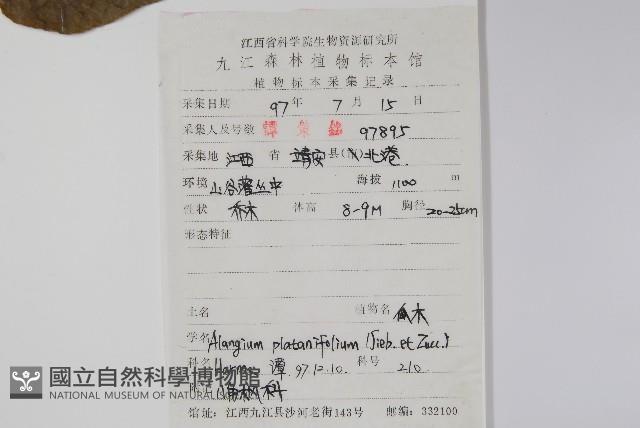 江西省科学院生物资源研究所
九江森林植物标本馆
植物标本采集记录
采集日期 97年 7月 15日
采集人及号数 谭策铭 97895
采集地 江西 省 靖安县(市)北港
环境 山谷灌丛中 海拔 1100 m
性状 乔木 体高 8-9M 胸径 20-25cm
形态特征
土名 植物名 瓜木
学名 Alangium platanifolium (Sieb. et Zucc.)
科名 Harms 谭 97.12.10. 科号 210
科
國立自然科學博物館
NATIONAL MUSEUM OF NATURAL
馆址：江西九江县沙河老街143号 邮编：332100